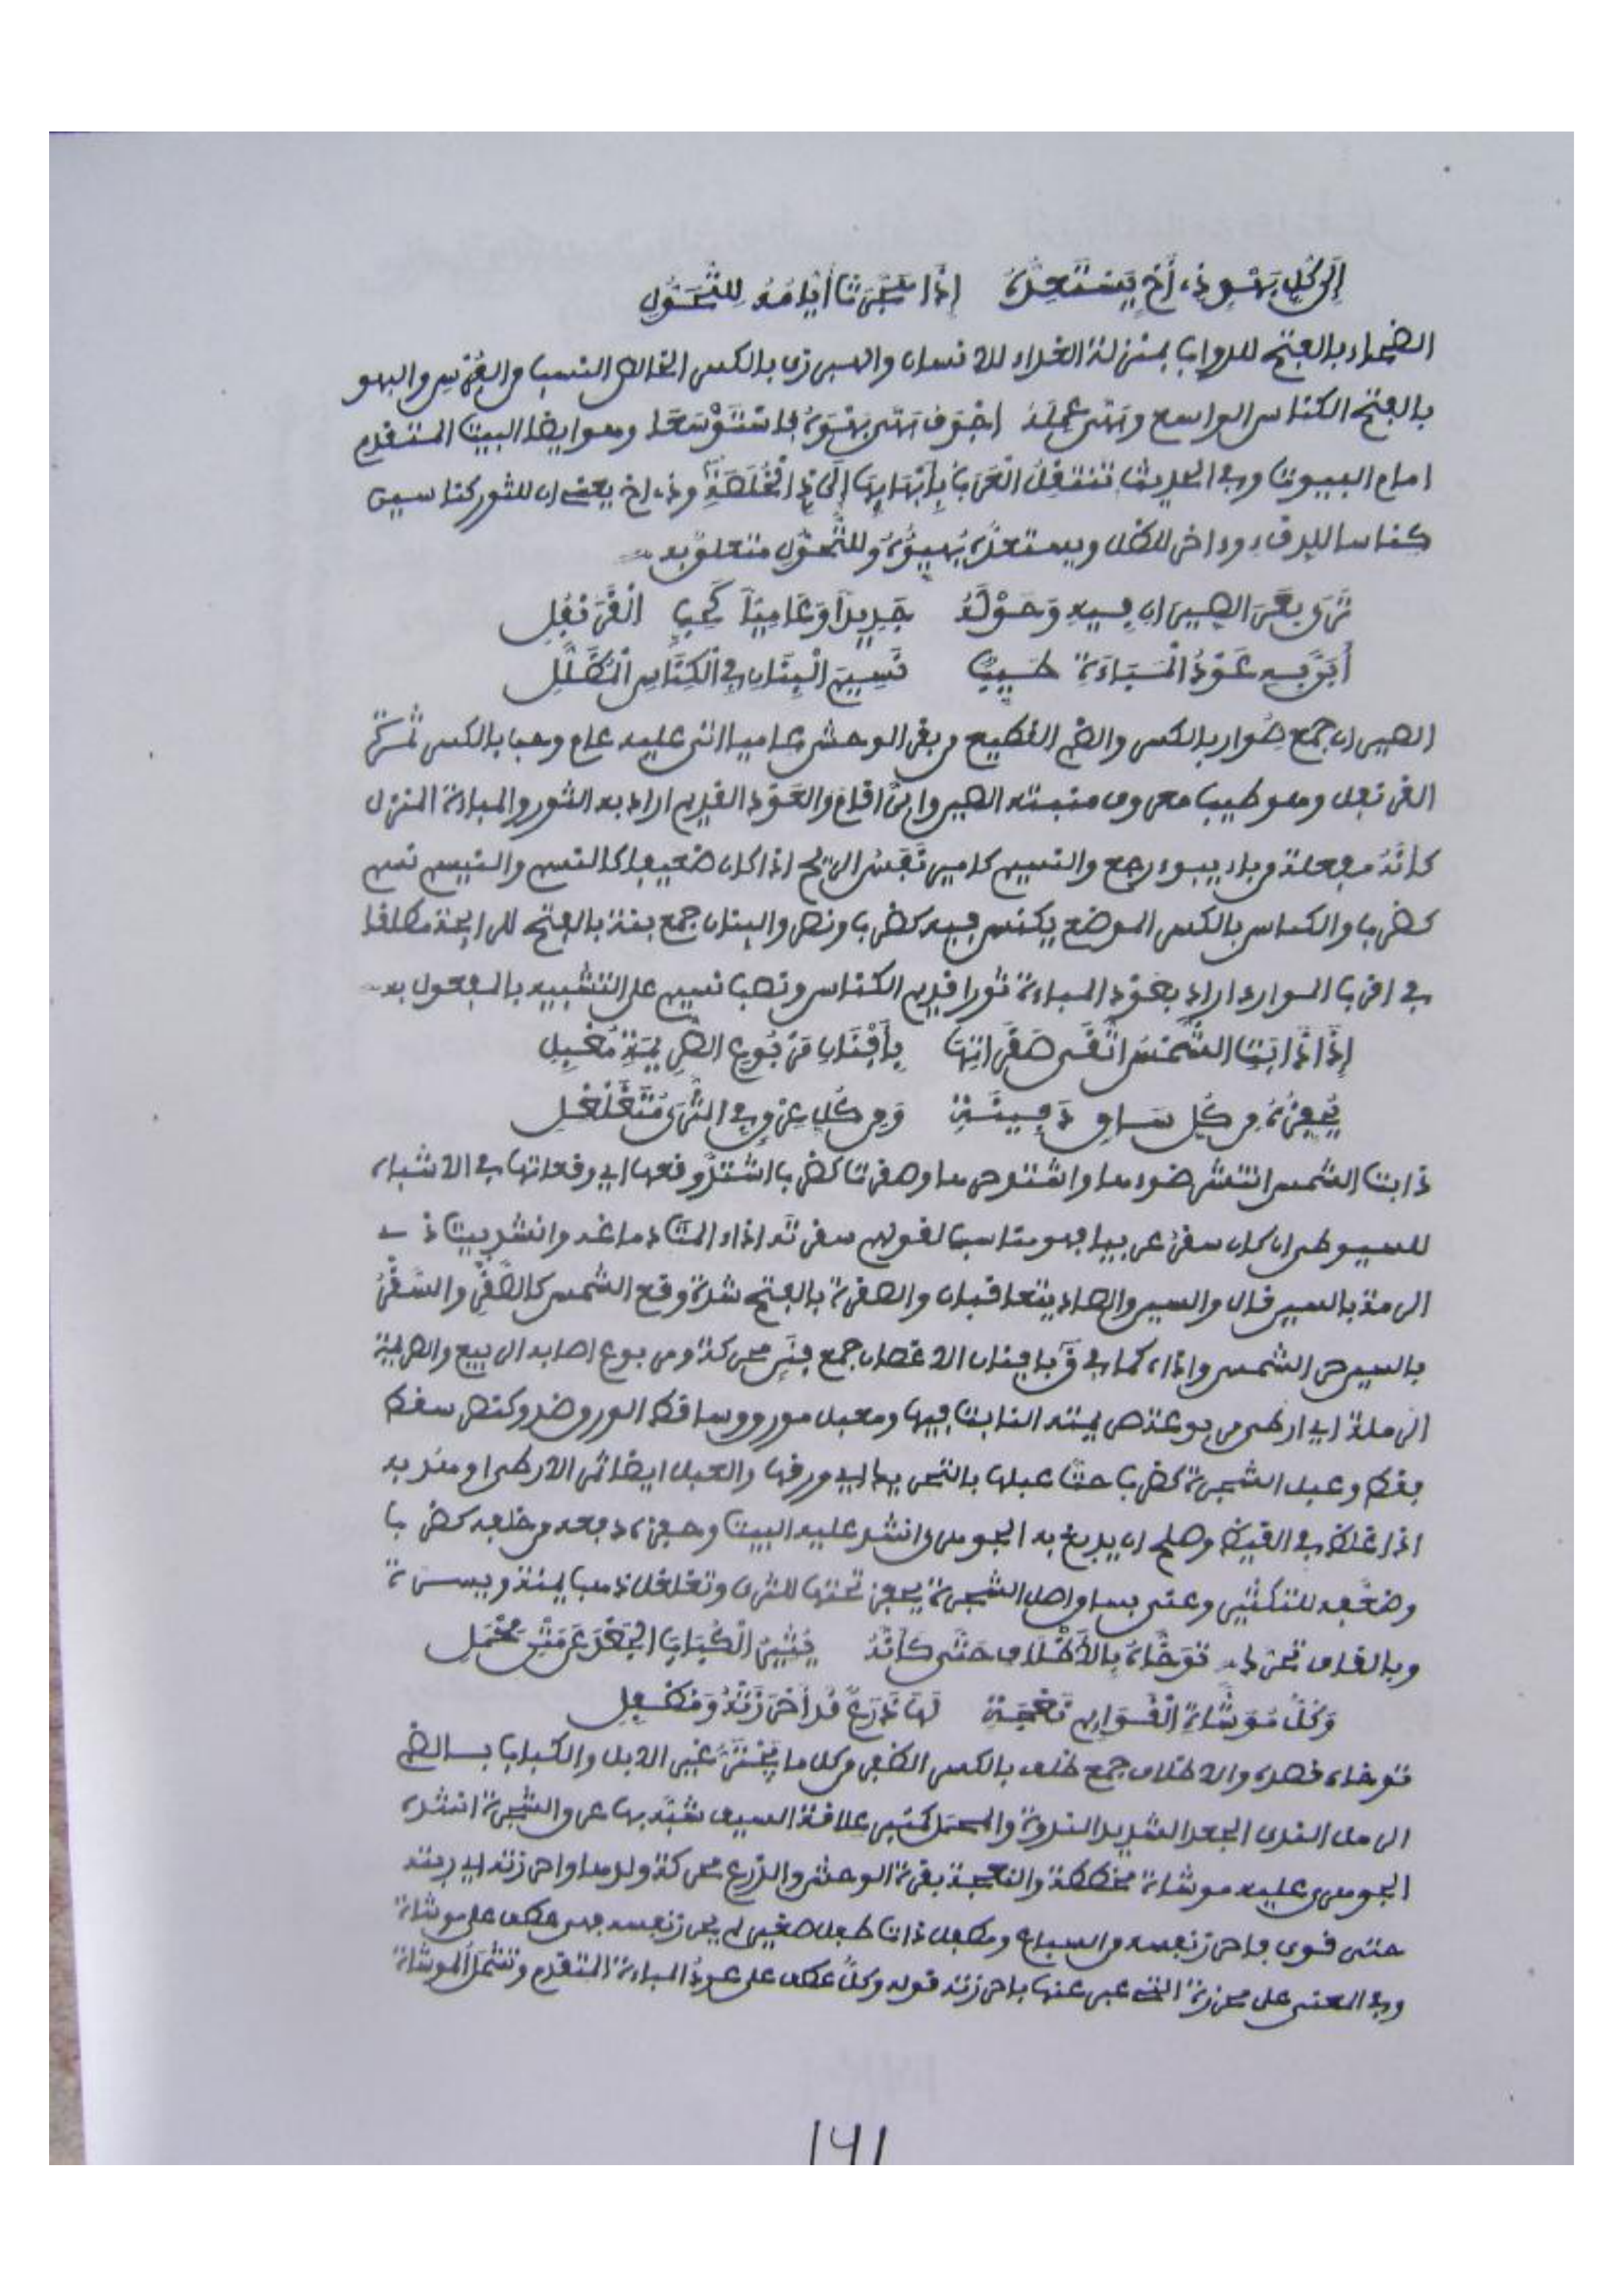 إِلَى كُلِّ بَهْوٍ ذِي أَخٍ يَسْتَعِدُّهُ إِذَا هَجَّرَتْ أَيَّامُهُ لِلتَّحَوُّلِ
الضحاء بالفتح للدواب بمنزلة الغداء للانسان والهبرزي بالكسر الخالص النسب من الفرس والبهو
بالفتح الكناس الواسع وهتي عمله اجوف بهوه فاستوسعا وهو ايضا البيت المتقدم
امام البيوت وفي الحديث تنتقل العرب بأبهائها إلى ذي الخلصة وذي اخ يعني ان للثور كناسين
كناسا للدفء وءاخر للظل ويستعده يهيؤه وللتحول متعلق به
تَرَى بَعَرَ الصِّيرَانِ فِيهِ وَحَوْلَهُ جَدِيداً وَعَامِيّاً كَحَبِّ الْقَرَنْفُلِ
أَبَنَّ بِهِ عَوْدُ الْمَبَاءَةِ طَيِّبٌ نَسِيمَ الْبِنَانِ فِي الْكِنَاسِ الْمُظَلَّلِ
الصيران جمع صُوار بالكسر والضم القطيع من بقر الوحش عاميا اتى عليه عام وحب بالكسر ثمرة
القرنفل وهو طيب معروف منبته الصين وابن اقام والعَوْد القديم اراد به الثور والمباءة المنزل
كأنه مفعلة من باء يبوء رجع والنسيم كامير نفس الريح اذا كان ضعيفا كالنسم والنيسم نسم
كضرب والكناس بالكسر الموضع يكنس فيه كضرب ونصر والبنان جمع بنة بالفتح للرايحة مطلقا
في اقرب الموارد اراد بعَوْد المباءة ثورا قديم الكناس ونصب نسيم على التشبيه بالمفعول به
إِذَا ذَابَتِ الشَّمْسُ اتَّقَى صَقَرَاتِهَا بِأَفْنَانِ مَرْبُوعِ الصَّرِيمَةِ مُعْبِلِ
يُحَفِّرُهُ مِن كُلِّ سَاقٍ دَفِينَةٍ وَمِن كُلِّ عِرْقٍ فِي الثَّرَى مُتَغَلْغِلِ
ذابت الشمس انتشر ضوءها واشتد حرها وصقرت كضرب اشتد وقعها اي وقعاتها في الاشباه
للسيوطي ان كان سقر عربيا فهو مناسب لقولهم سقرته اذاءالمت دماغه وانشد بيت ذي
الرمة بالسين قال والسين والصاد يتعاقبان والصقرة بالفتح شدة وقع الشمس كالصقر والسقر
بالسين حر الشمس واذاه كما في ق بافنان الاغصان جمع فنن محركة ومربوع اصابه الربيع والصريمة
الرملة اي ارطى مربوعة صريمته النابت فيها ومعبل مورق وساقط الورق ضد وكنصر سقط
فقط وعبل الشجرة كضرب حت عبلها بالتحريك اي ورقها والعبل ايضا ثمر الارطى او هدبه
اذا غلظ في القيظ وصلح ان يدبغ به الجوهري وانشد عليه البيت وحفره دفعه من خلفه كضرب
وضعفه للتكثير وعنى بساق اصل الشجرة يحفر تحتها للثرى وتغلغل ذهب يمنة ويسرة
وبالقاف تحرك تَوَخَّاهُ بِالْأَظْلَافِ حَتَّى كَأَنَّهُ يُثِيرُ الْكُبَابَ الْجَعْدَ عَن مَتْنِ مِحْمَلِ
وَكُلُّ مُوَشَّاةِ الْقَوَائِمِ نَعْجَةٍ لَهَا ذَرَعٌ قَد أَحْرَزَتْهُ وَمُطْفِلِ
توخاه قصده والاظلاف جمع ظلف بالكسر الظفر من كل ما يجتر غير الابل والكباب بالضم
الرمل الندي الجعد الشديد الندوة والمحمل كمنبر علاقة السيف شبه بها عرق الشجرة انشده
الجوهري عليه موشاة مخططة والنعجة بقرة الوحش والذرع محركة ولدها واحرزته اي ربته
حتى قوي فاحرز نفسه من السباع ومطفل ذات طفل صغير لم يحرز نفسه فهي عطف على موشاة
وفي المعنى على محرزة التي عبر عنها باحرزته قوله وكل عطف على عود المباءة المتقدم وتشمل الموشاة
141